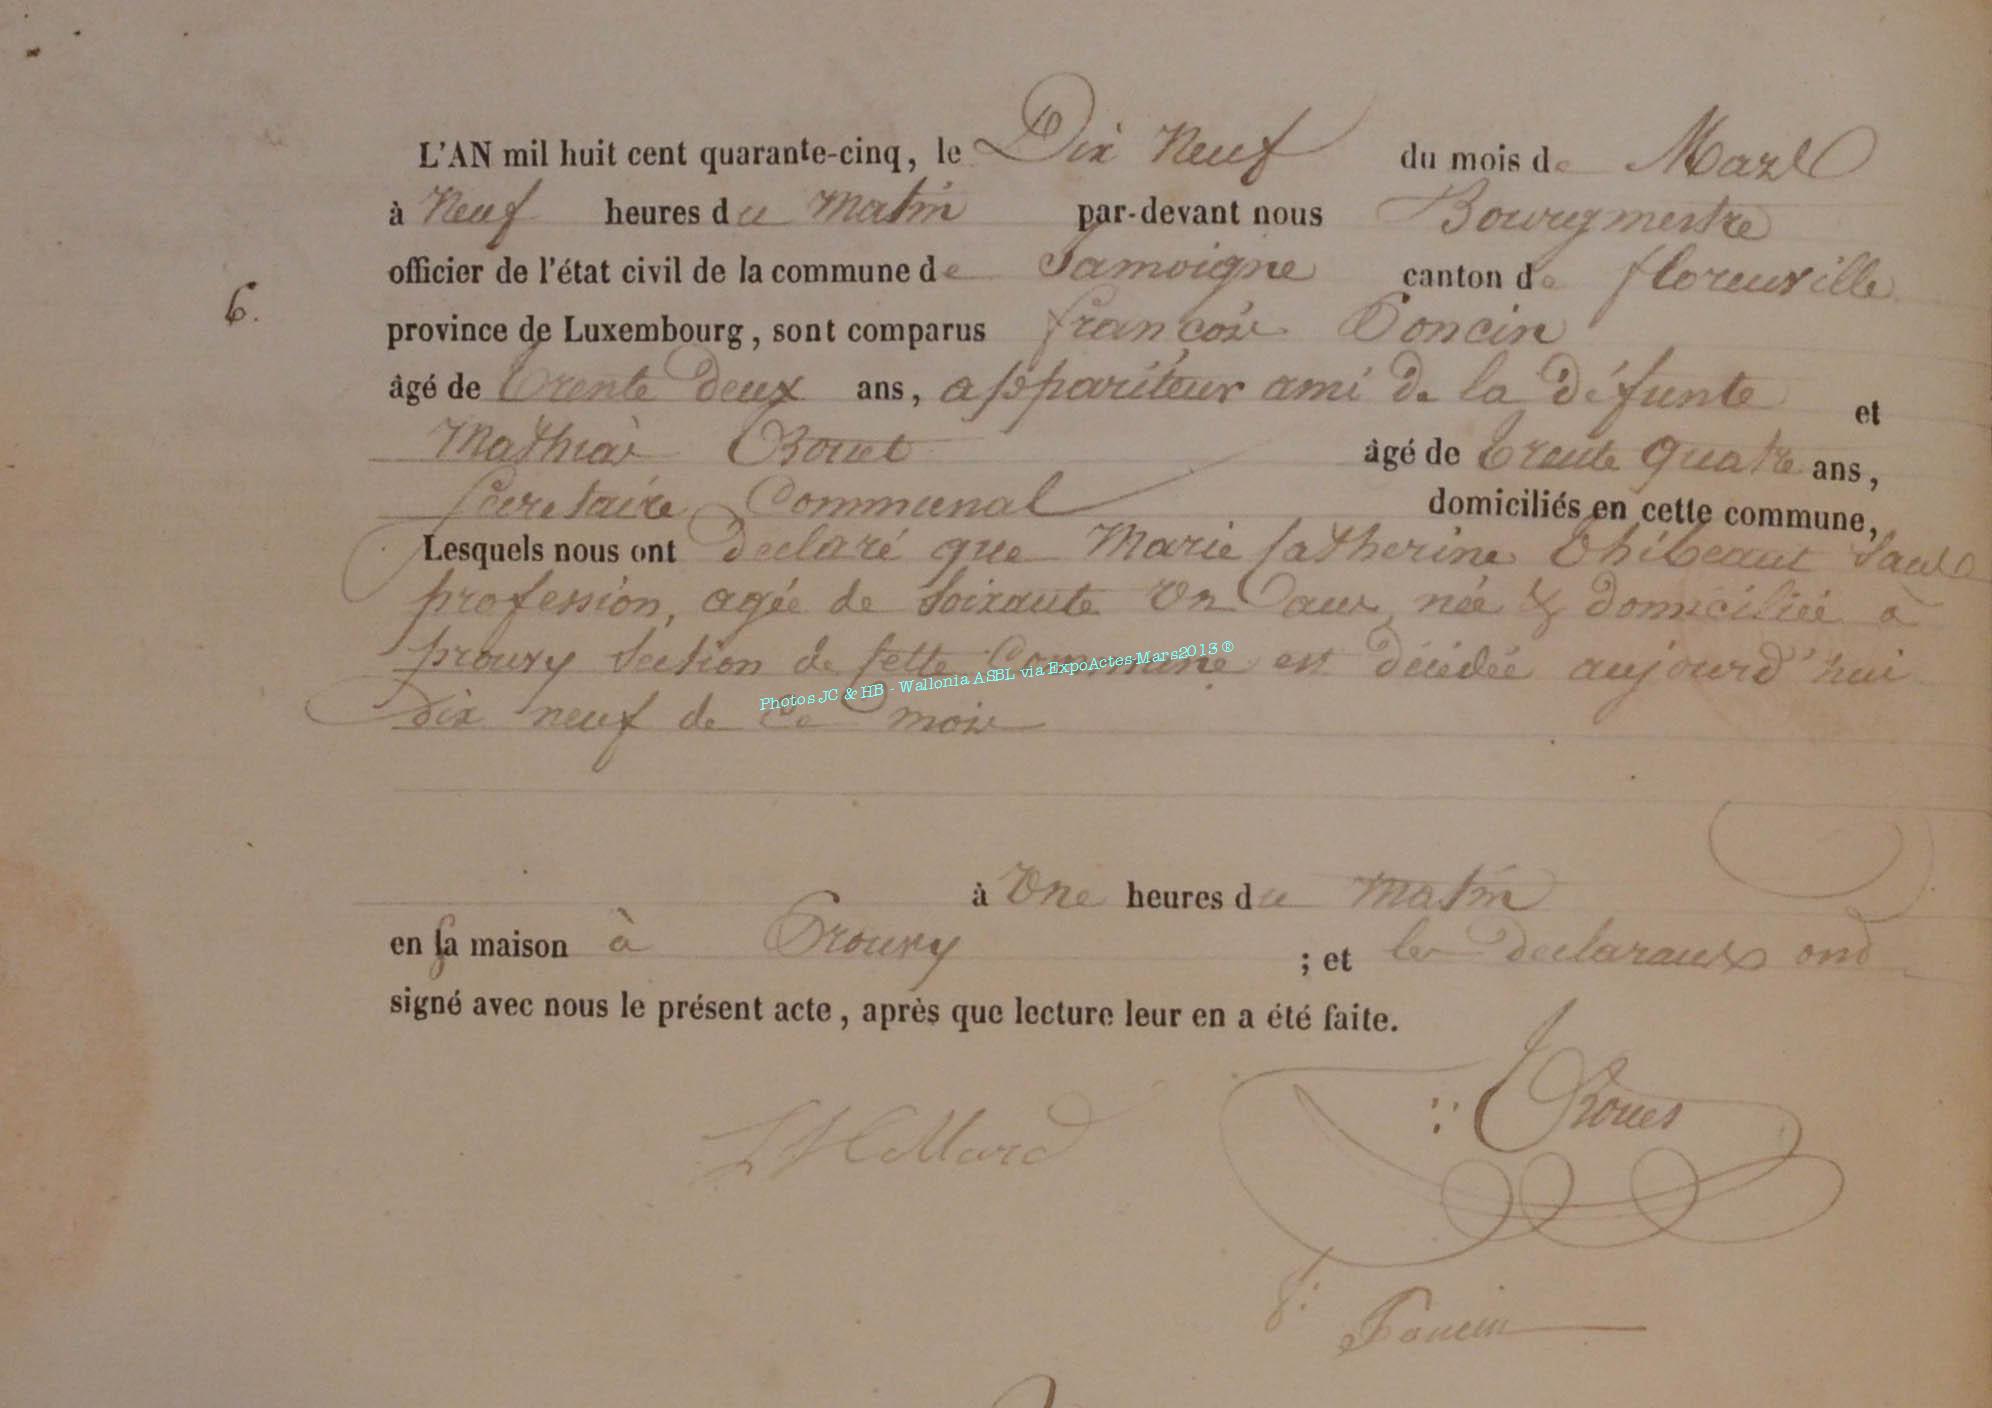 L'AN mil huit cent quarante-cinq, le Dix Neuf du mois de Mars
à Neuf heures du Matin par-devant nous Bourgmestre
officier de l'état civil de la commune de Jamoigne canton de florenville
province de Luxembourg, sont comparus françois Poncin
6.
âgé de trente Deux ans, appariteur ami de la défunte et
Mathias Rouet âgé de trente quatre ans,
Secretaire Communal domiciliés en cette commune,
Lesquels nous ont declaré que Marie Catherine Thibeaut Sans
profession, agée de soixante un ans, née & domiciliée à
prouvy section de cette Commune est décédée aujourd'hui
Photos JC & HB - Wallonia ASBL via ExpoActes-Mars2013 ®
dix neuf de ce mois
à une heures du matin
en sa maison à Prouvy ; et les declarans ond
signé avec nous le présent acte, après que lecture leur en a été faite.
Poncin